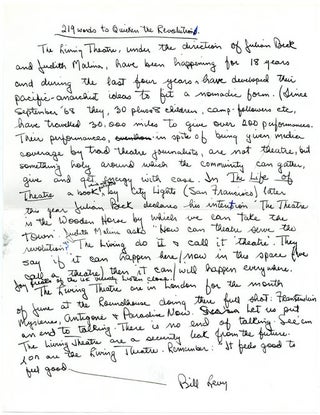 219 words to Quicken the Revolution.
The Living Theatre, under the direction of Julian Beck
and Judith Malina, have been happening for 18 years
and during the last four years have developed their
pacific-anarchist ideas to fit a nomadic form. (Since
September '68 they, 30 plus children, camp-followers etc.
have travelled 30,000 miles to give over 200 performances.
Their performances, in spite of being given media
coverage by trad theatre journalists, are not theatre, but
something holy around which the community can gather,
give and get energy with ease. In The Life of
Theatre a book by City Lights (San Francisco) later
this year Julian Beck declares his intention 'The Theatre
is the Wooden Horse by which we can take the
Town.' Judith Malina asks 'How can theatre serve the
revolution?' The Living do it & call it 'theatre'. They
say if it can happen here/now in this space five
call a theatre, then it can/will happen everywhere.
The Living Theatre are in London for the month
of June at the Roundhouse doing their fuel shot: Frankenstein
Mysteries, Antigone & Paradise Now. Let us put
an end to talking. There is no end of talking. See 'em
The Living Theatre are a security leak from the future.
1 on are the Living Theatre. Remember: "It feels good to
feel good
Bill Levy